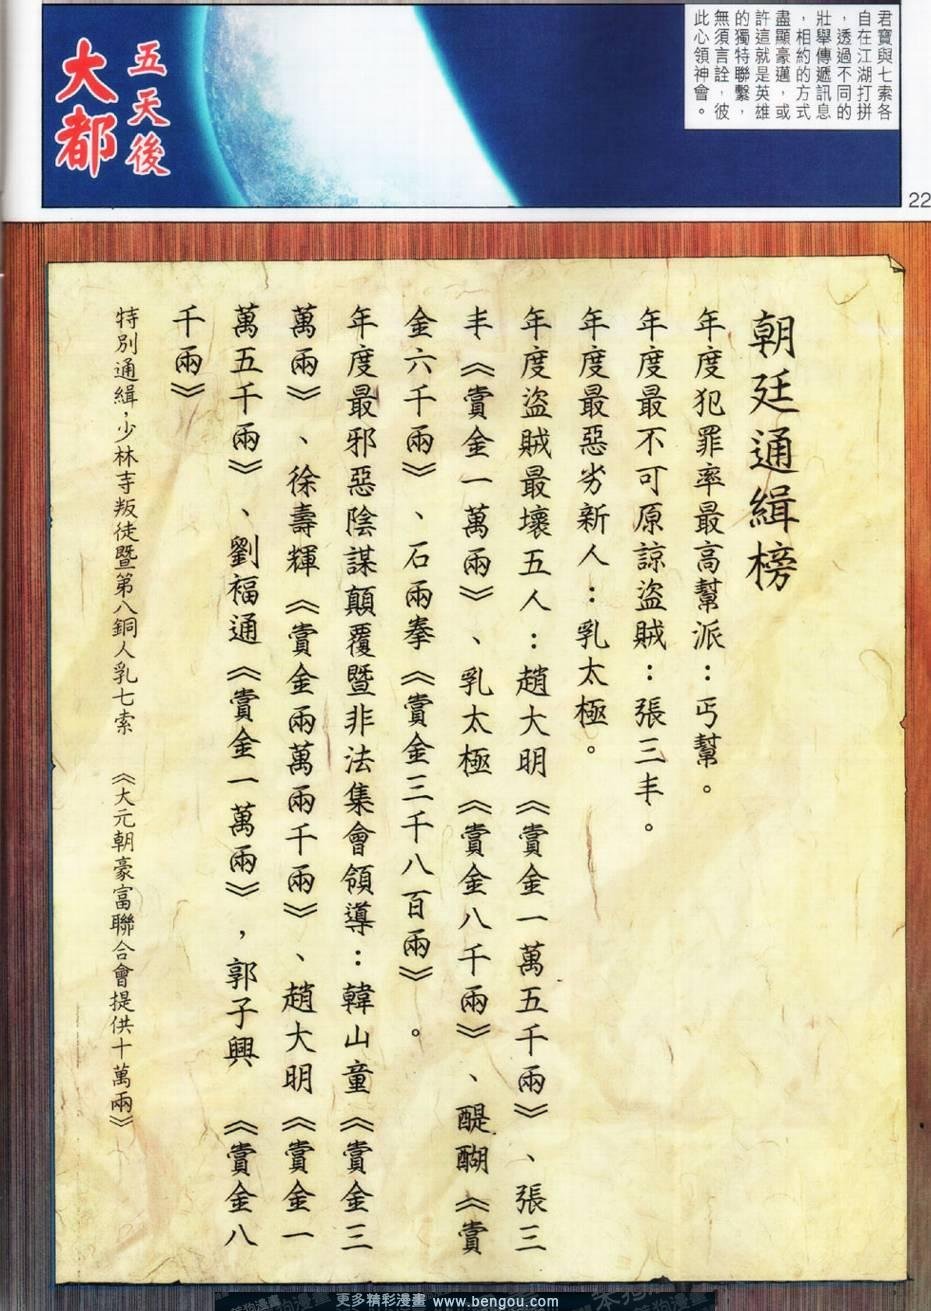 君寶與七索各
自在江湖打拼
，透過不同的
壯舉傳遞訊息
，相約的方式
盡顯豪邁，或
許這就是英雄
的獨特聯繫，
無須言詮，彼
此心領神會。
五天後
大都
22
朝廷通緝榜
年度犯罪率最高幫派：丐幫。
年度最不可原諒盜賊：張三丰。
年度最惡劣新人：乳太極。
年度盜賊最壞五人：趙大明《賞金一萬五千兩》、張三
丰《賞金一萬兩》、乳太極《賞金八千兩》、醍醐《賞
金六千兩》、石兩拳《賞金三千八百兩》。
年度最邪惡陰謀顛覆暨非法集會領導：韓山童《賞金三
萬兩》、徐壽輝《賞金兩萬兩千兩》、趙大明《賞金一
萬五千兩》、劉福通《賞金一萬兩》，郭子興《賞金八
千兩》
特別通緝，少林寺叛徒暨第八銅人乳七索 《大元朝豪富聯合會提供十萬兩》
更多精彩漫畫 www.bengou.com